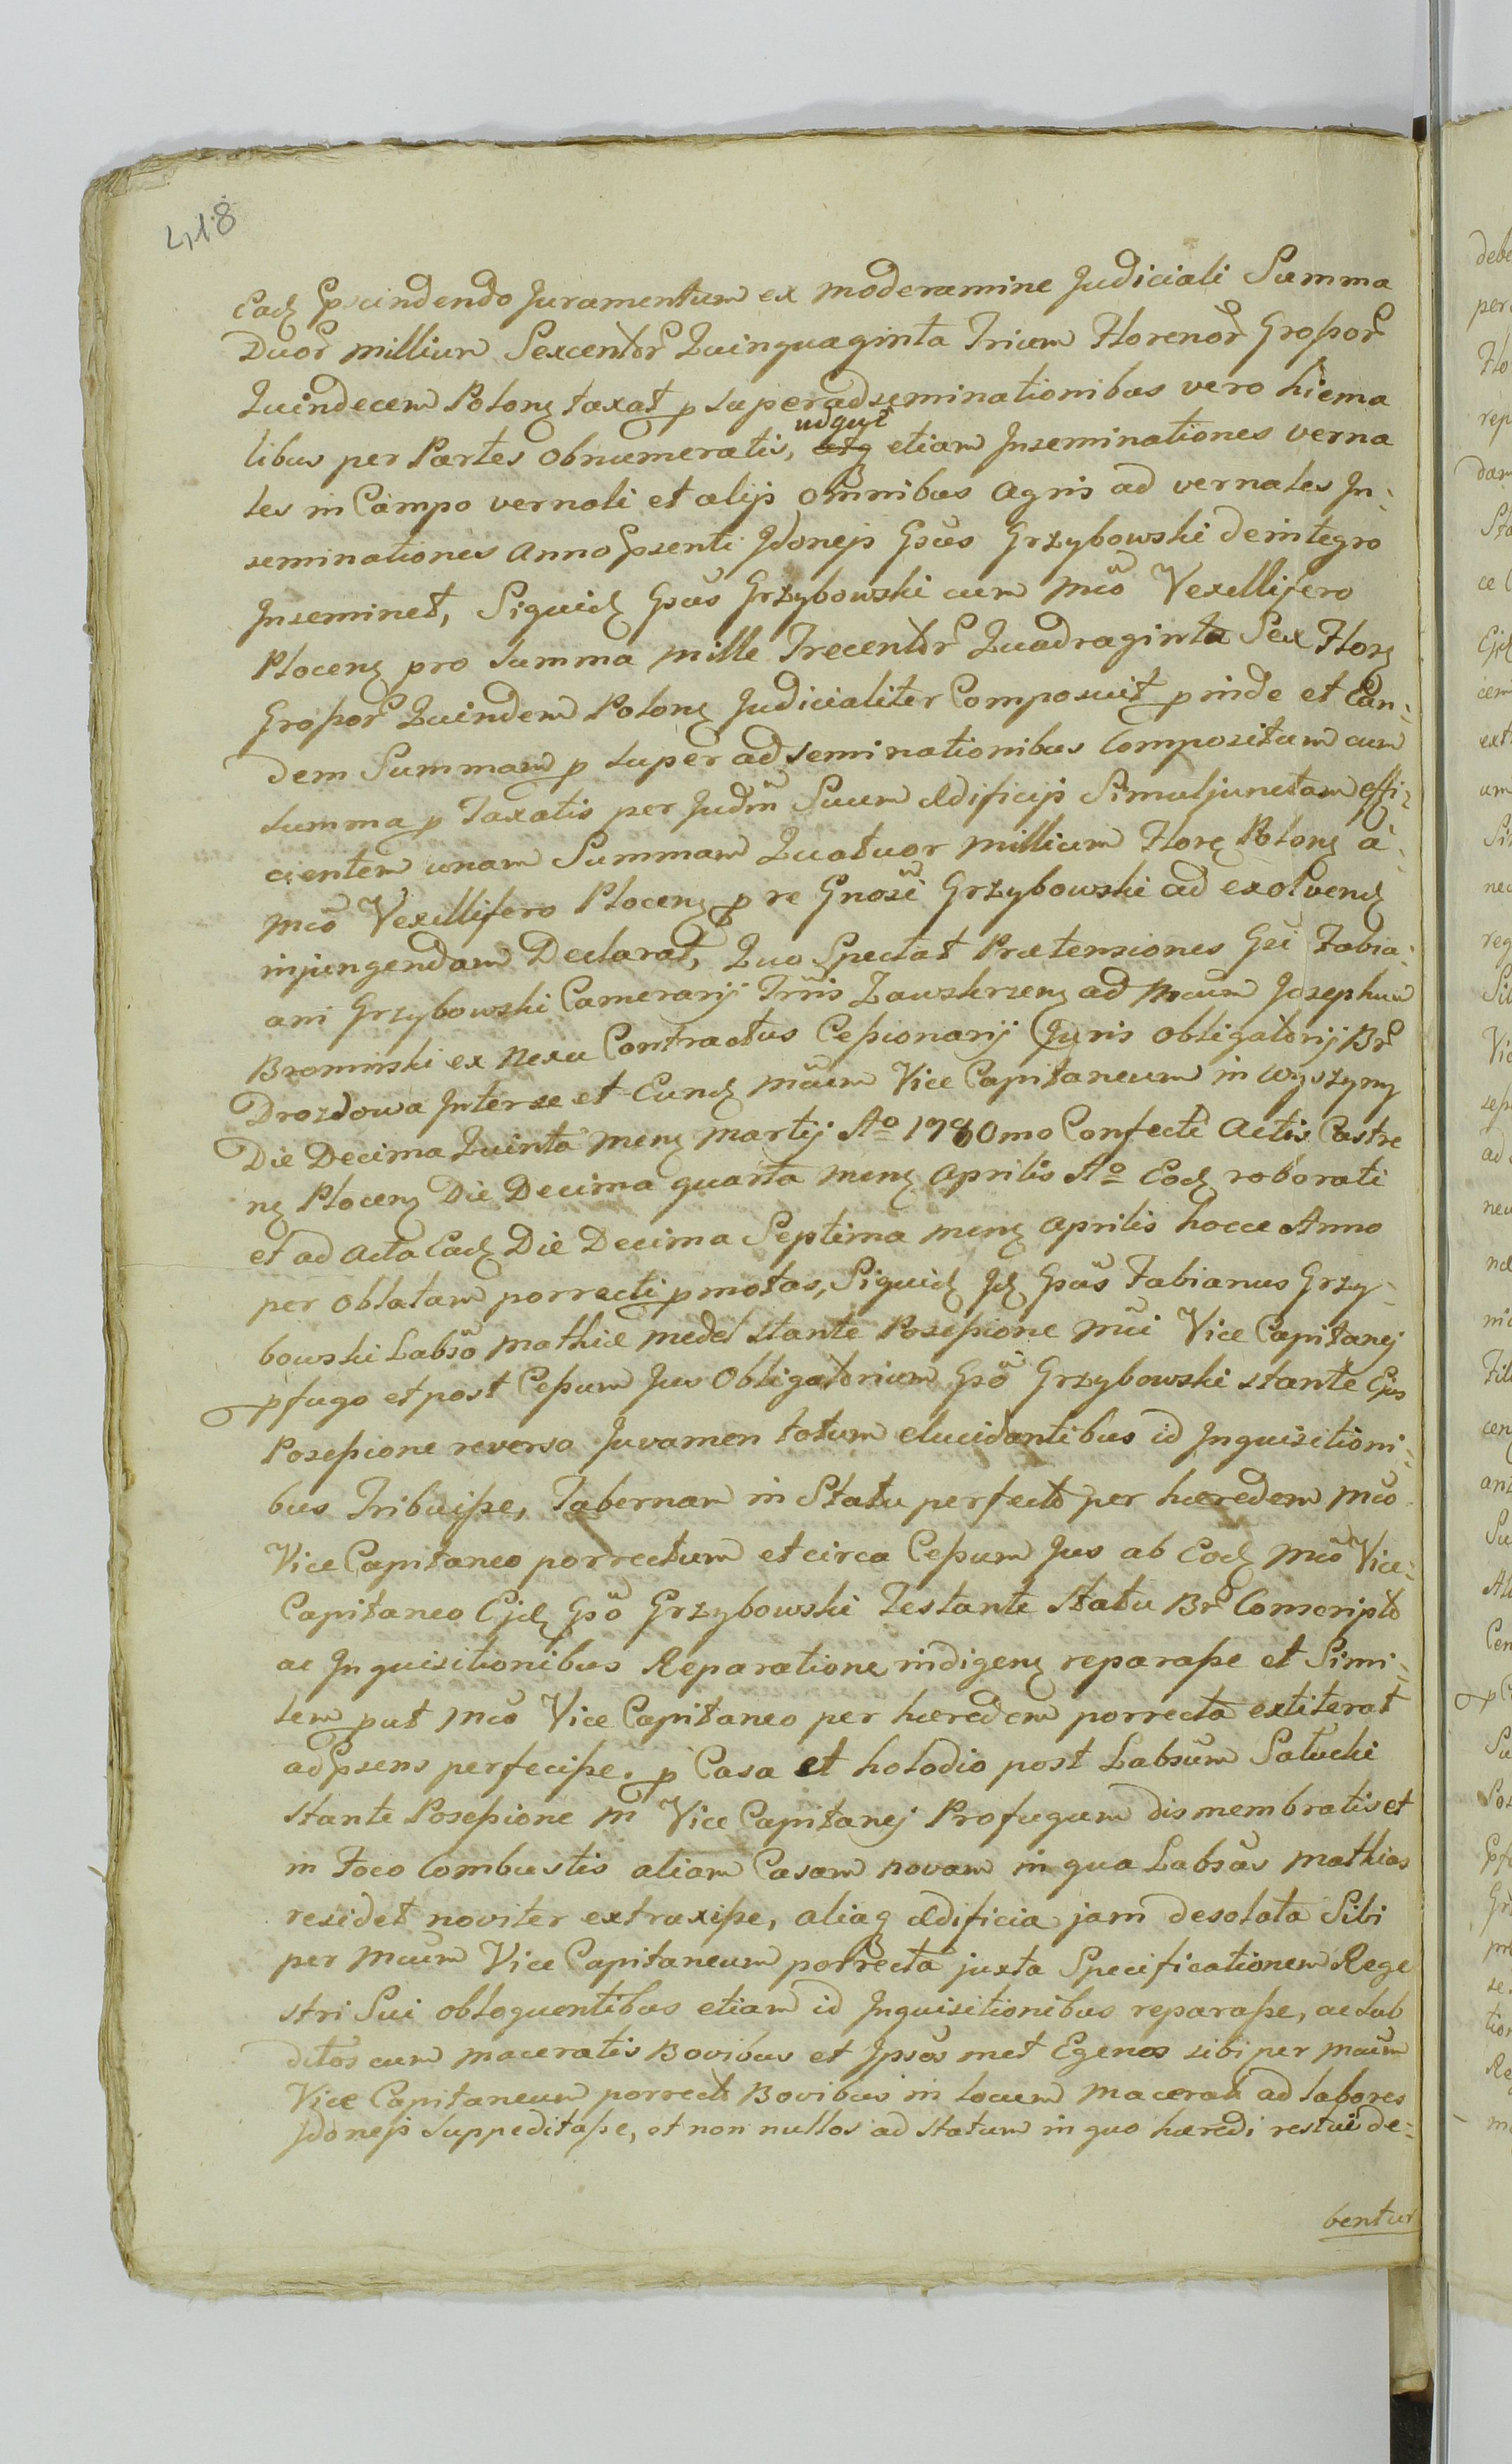 418
Eadʒ Pscindendo Juramentum ex Moderamine Judiciali Summa
Duor Millium Sexcentor Quinquaginta Trium Florenor Groszor
Quindecem Polonʒ taxat p superadseminationibus vero hiema
libus per Partes obnumeratis, etiam Inseminationes verna
les in Campo vernali et alijs omnibus Agris ad vernales In-
seminationes Anno Psenti Idonejs Gsus Grzybowski deintegro
Inseminet, Siquidʒ Gsus Grzybowski cum Mco Vexillifero
Plocenʒ pro Summa Mille Trecentor Quadraginta Sex Florʒ
Groszor Quindem Polonʒ Judicialiter Composuit pinde et Ean-
dem Summam p super adseminationibus Compositam cum
Summa p Taxatis per Judm Suum Ædificijs Simuljunctam effi-
cientem unam Summam Quatuor Millium Florʒ Polonʒ à
Mco Vexillifero Plocenʒ p re Gnosi Grzybowski ad exolvendʒ
injungendam Declarat, Quo Spectat Prætensiones Gsi Fabia-
ani Grzybowski Camerarij Trris Zawskrzenʒ ad Mcum Josephum
Brominski ex Nexu Contractus Cessionarij Juris obligatorij Br
Drozdowa Inter se et Eundʒ Mcum Vice Capitaneum in Wyszyny
Die Decima Quinta Menʒ Martij Ao 1780mo Confecti Actis Castre
nʒ Plocenʒ Die Decima quarta Menʒ Aprilis Ao Eodʒ roborati
et ad Acta Eadʒ Die Decima Septima Menʒ Aprilis hocce Anno
per oblatam porrecti pmotas, Siquidʒ Jdʒ Gsus Fabianus Grzy-
bowski Labso Mathiæ Medel stante Possessione Mci Vice Capitanej
pfugo et post Cessum Jus Obligatorium Gso Grzybowski stante Ejus
Possessione reverso Juvamen totum elucidantibus id Inquisitioni-
bus Tribuisse, Tabernam in Statu perfecto per hæredem Mco
Vice Capitaneo porrectum et circa Cessum Jus ab Eodʒ Mco Vice-
Capitaneo Ejdʒ Gso Grzybowski Testante Statu Br Conscripto
ac Inquisitionibus Reparatione indigenʒ reparasse et Simi-
lem put Mco Vice Capitaneo per hæredem porrecta extiterat
ad Psens perfecisse. p Casa et holodio post Labsum Satucki
stante Possessione M Vice Capitanej Profugum dismembratis et
in Foco Combustis aliam Casam novam in qua Labsus Mathias
residet noviter extruxisse, aliaq Ædificia jam desolata Sibi
per Mcum Vice Capitaneum porrecta juxta Specificationem Rege
stri Sui obloquentibus etiam id Inquisitionibus reparasse, ac sub
ditos cum maceratis Bovibus et Ipsos met Egenos sibi per Mcum
Vice Capitaneum porrectos Bovibus in locum macerati ad labores
Idonejs suppeditasse, et non nullos ad statum in quo hæredi restui de-
bentur